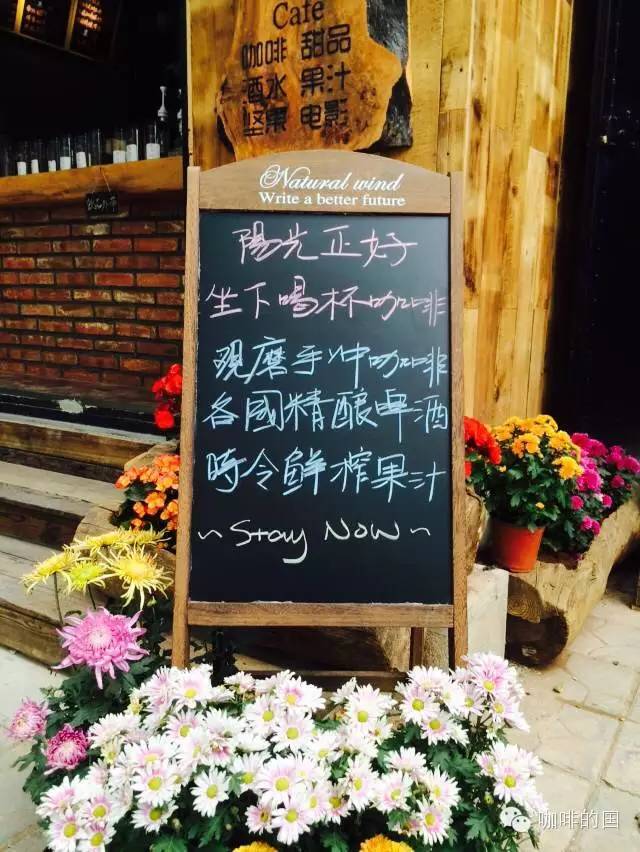 Cafe
咖啡 甜品
酒水 果汁
坚果 电影
Natural wind
Write a better future
陽光正好
坐下喝杯咖啡
现磨手冲咖啡
各國精酿啤酒
時令鮮榨果汁
~Stay Now~
咖啡的国